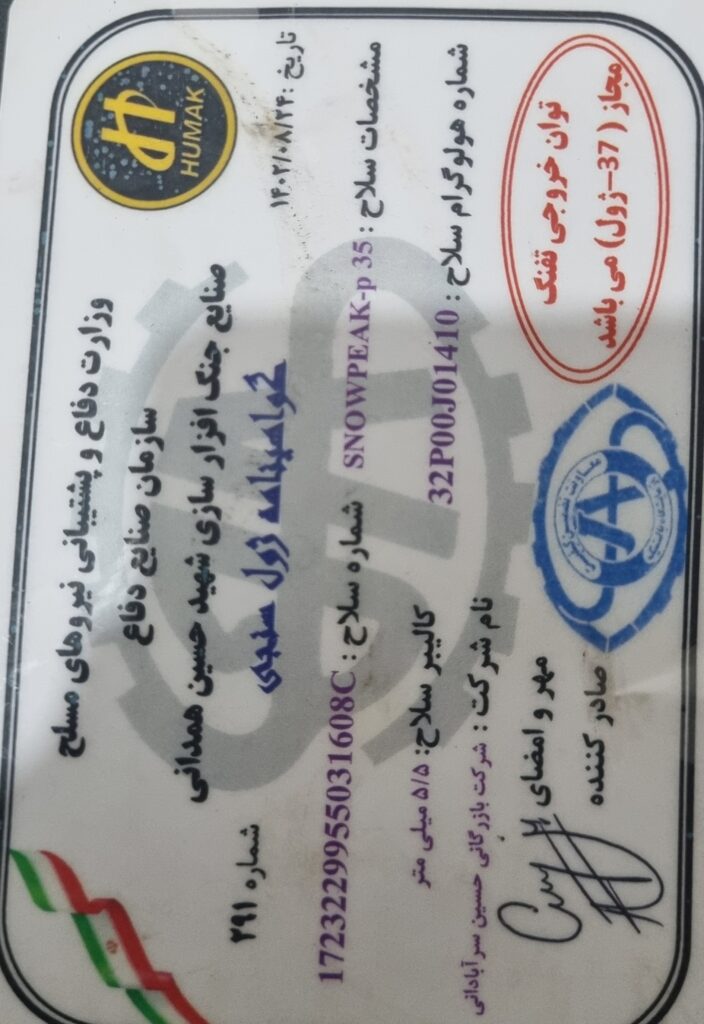 HUMAK
وزارت دفاع و پشتیبانی نیروهای مسلح
سازمان صنایع دفاع
صنایع جنگ افزار سازی شهید حسین همدانی
تاریخ : ۱۴۰۳/۰۸/۲۴
گواهینامه ژول سنجی
شماره ۳۹۱
مشخصات سلاح : SNOWPEAK-p 35 شماره سلاح : 1723229955031608C
شماره هولوگرام سلاح : 32P00J01410 کالیبر سلاح: ۵/۵ میلی متر
نام شرکت : شرکت بازرگانی حسین سرآبادانی
توان خروجی تفنگ
مجاز ( 37-ژول) می باشد
مهر و امضای
صادر کننده